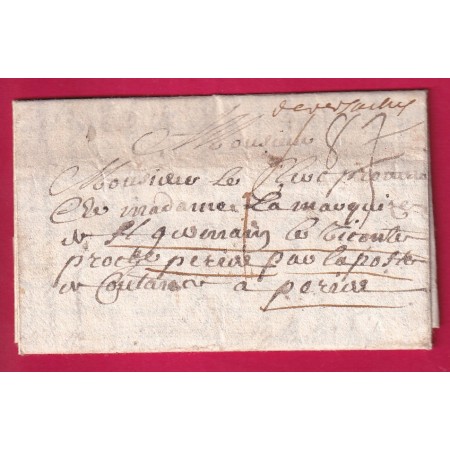 deversailles
Monsieur
Monsieur Le
De madame La marquise
de St germain le Vicomte
proche perier par la poste
de Coutance a perier